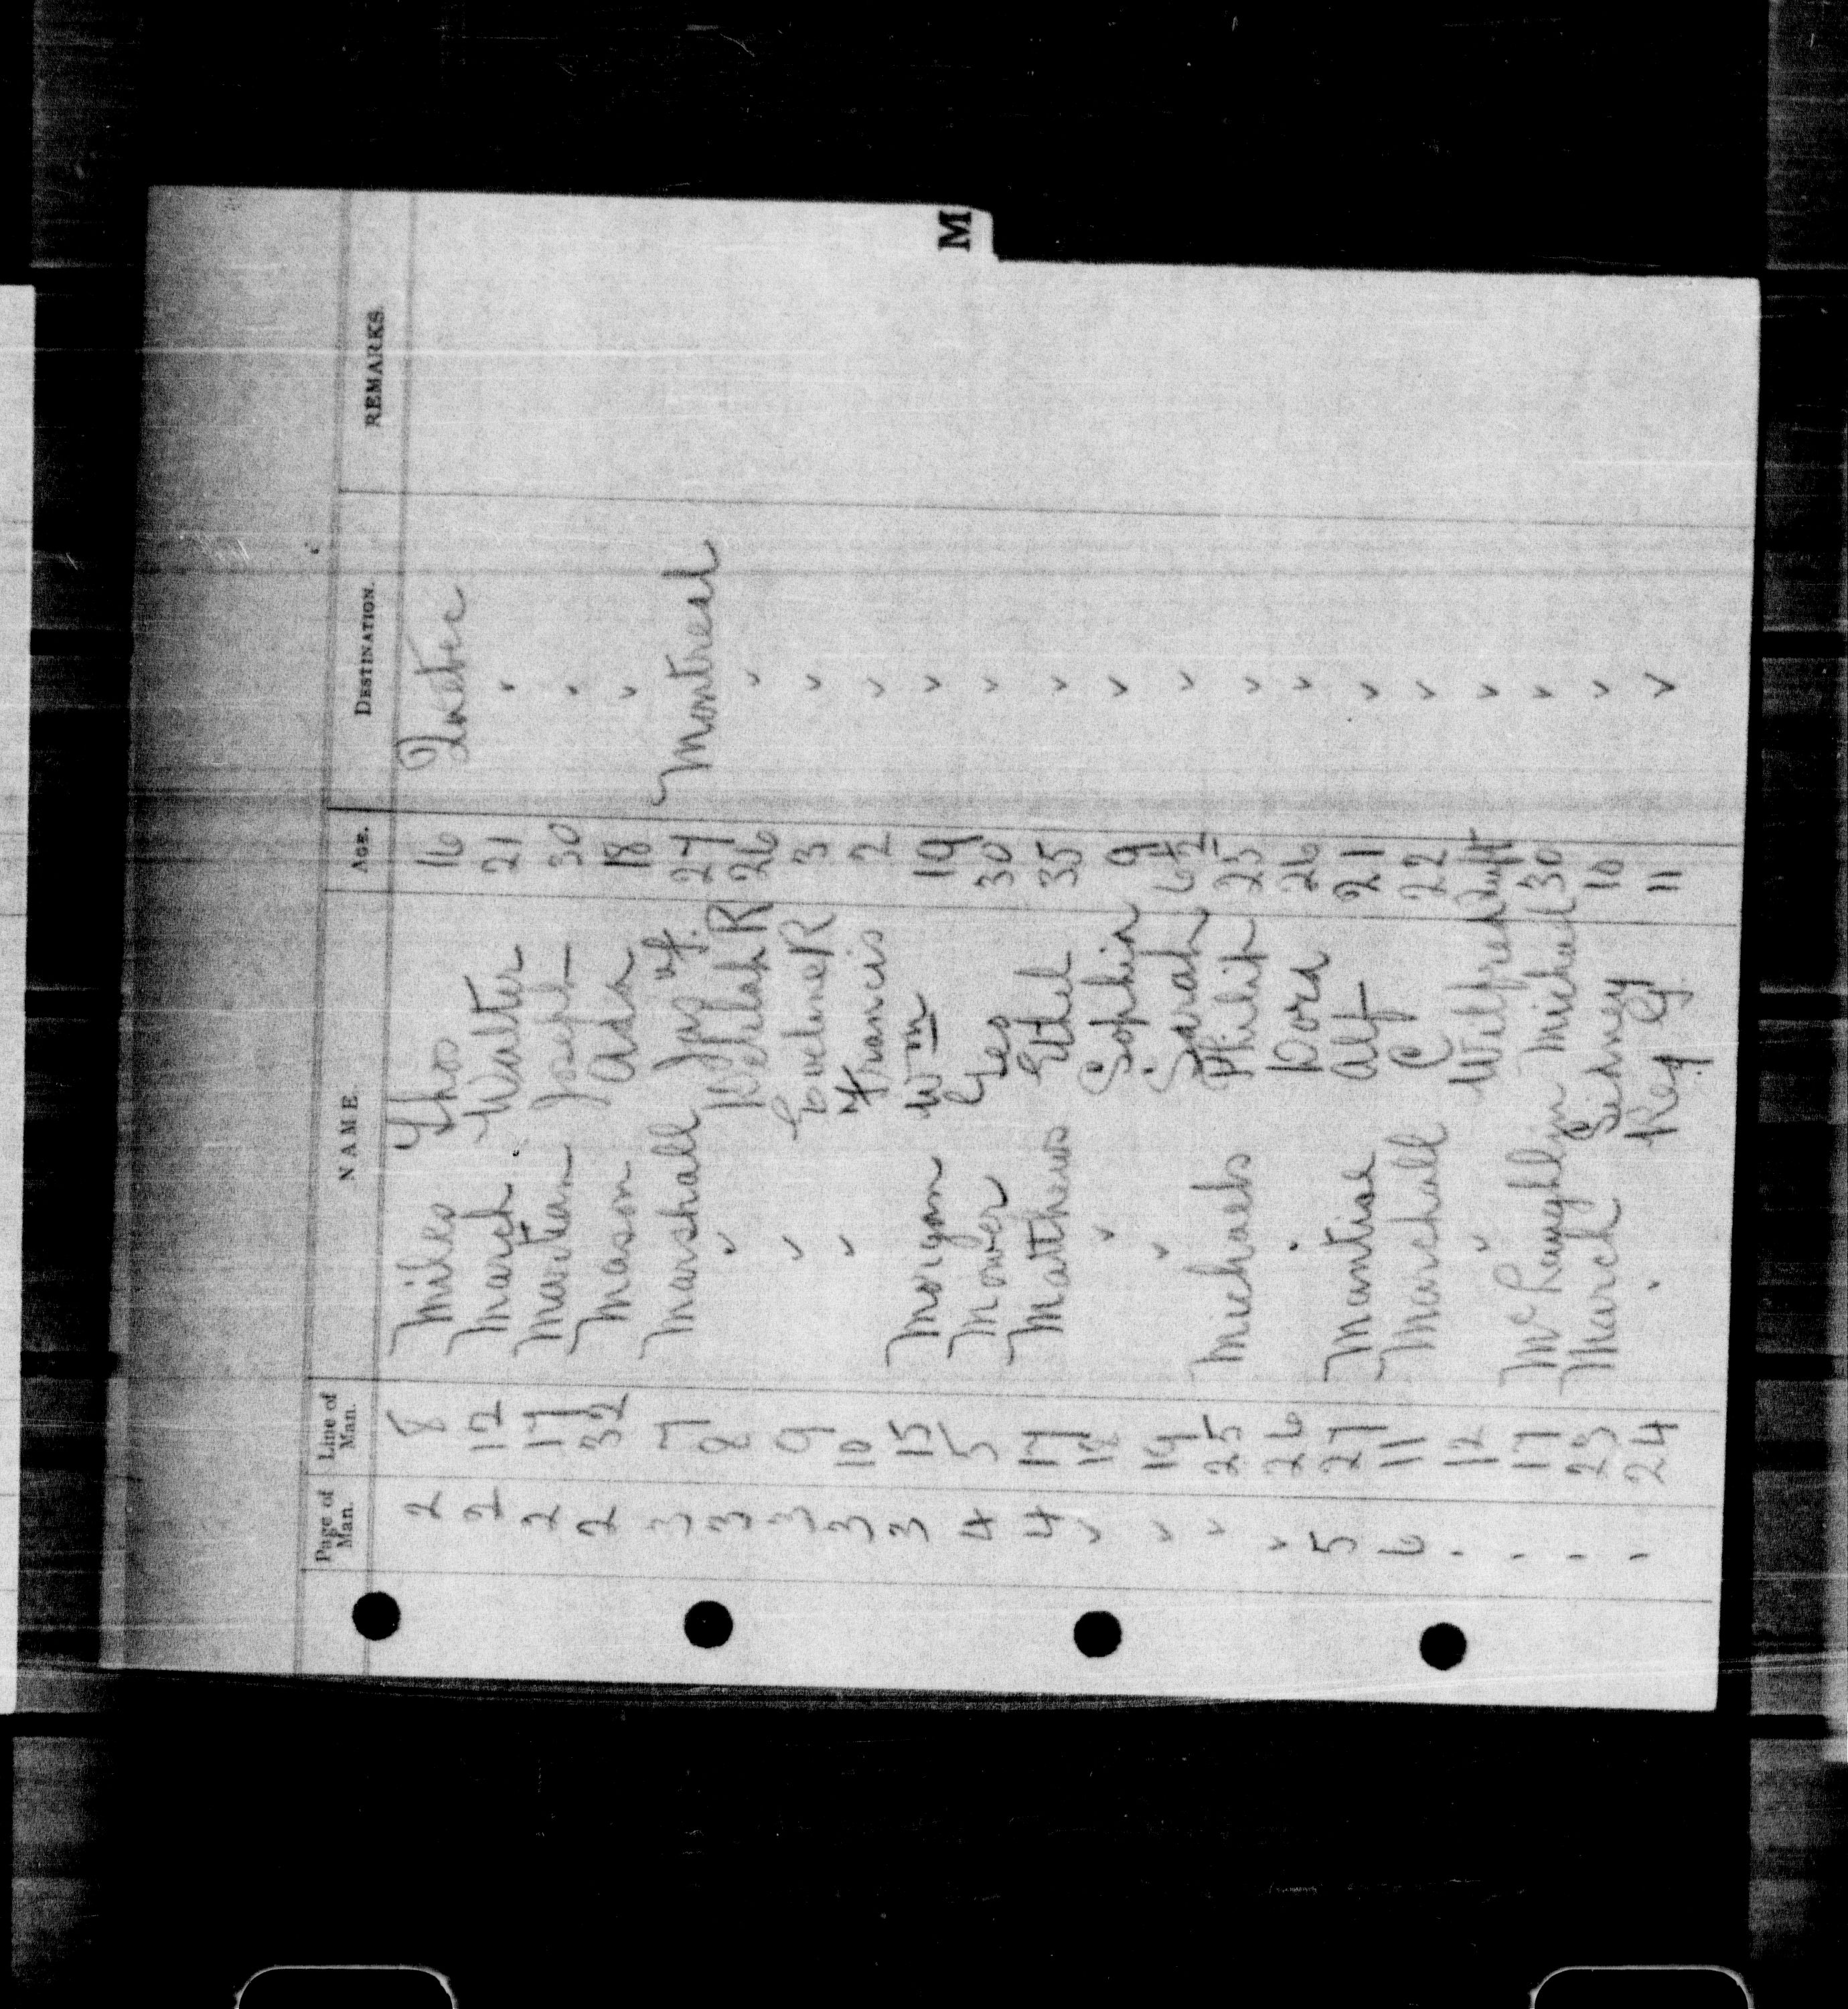 M
Page of Man. Line of Man. NAME. AGE. DESTINATION. REMARKS.
2 8 Miles Thos 16 Quebec
2 12 March Walter 21 "
2 17 Joseph 30 "
2 32 Mason Ada 18 "
3 7 Marshall Jas H. 27 Montreal
3 8 " Delilah R 26 "
3 9 " Eveline R 3 "
3 10 " Francis 2 "
3 15 Morgan Wm 19 "
4 5 Mower Geo 30 "
4 17 Matthews Ethel 35 "
" 18 " Sophia 9 "
" 19 " Sarah "
" 25 Michaels Philip 25 "
" 26 " Dora 26 "
5 27 Alf 21 "
6 11 Marchall C 22 "
- 12 " Wilfred "
- 17 McLaughlin Michael 30 "
- 23 March Sidney 10 "
- 24 " Reg G. 11 "